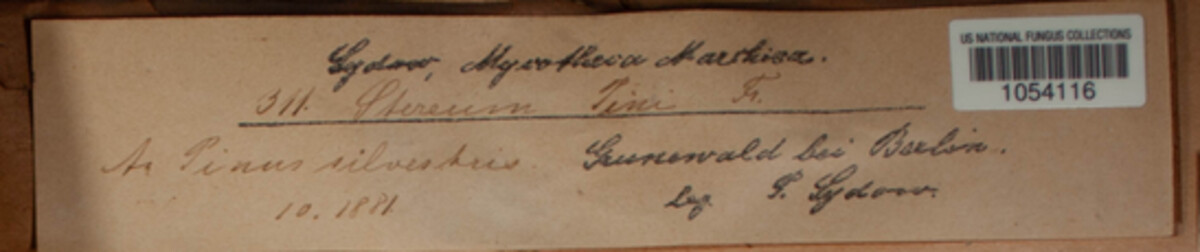 Sydow, Mycotheca Marchica.
311. Stereum Pini Fr.
An Pinus silvestris. Grunewald bei Berlin.
10. 1881. leg. P. Sydow.
US NATIONAL FUNGUS COLLECTIONS
1054116